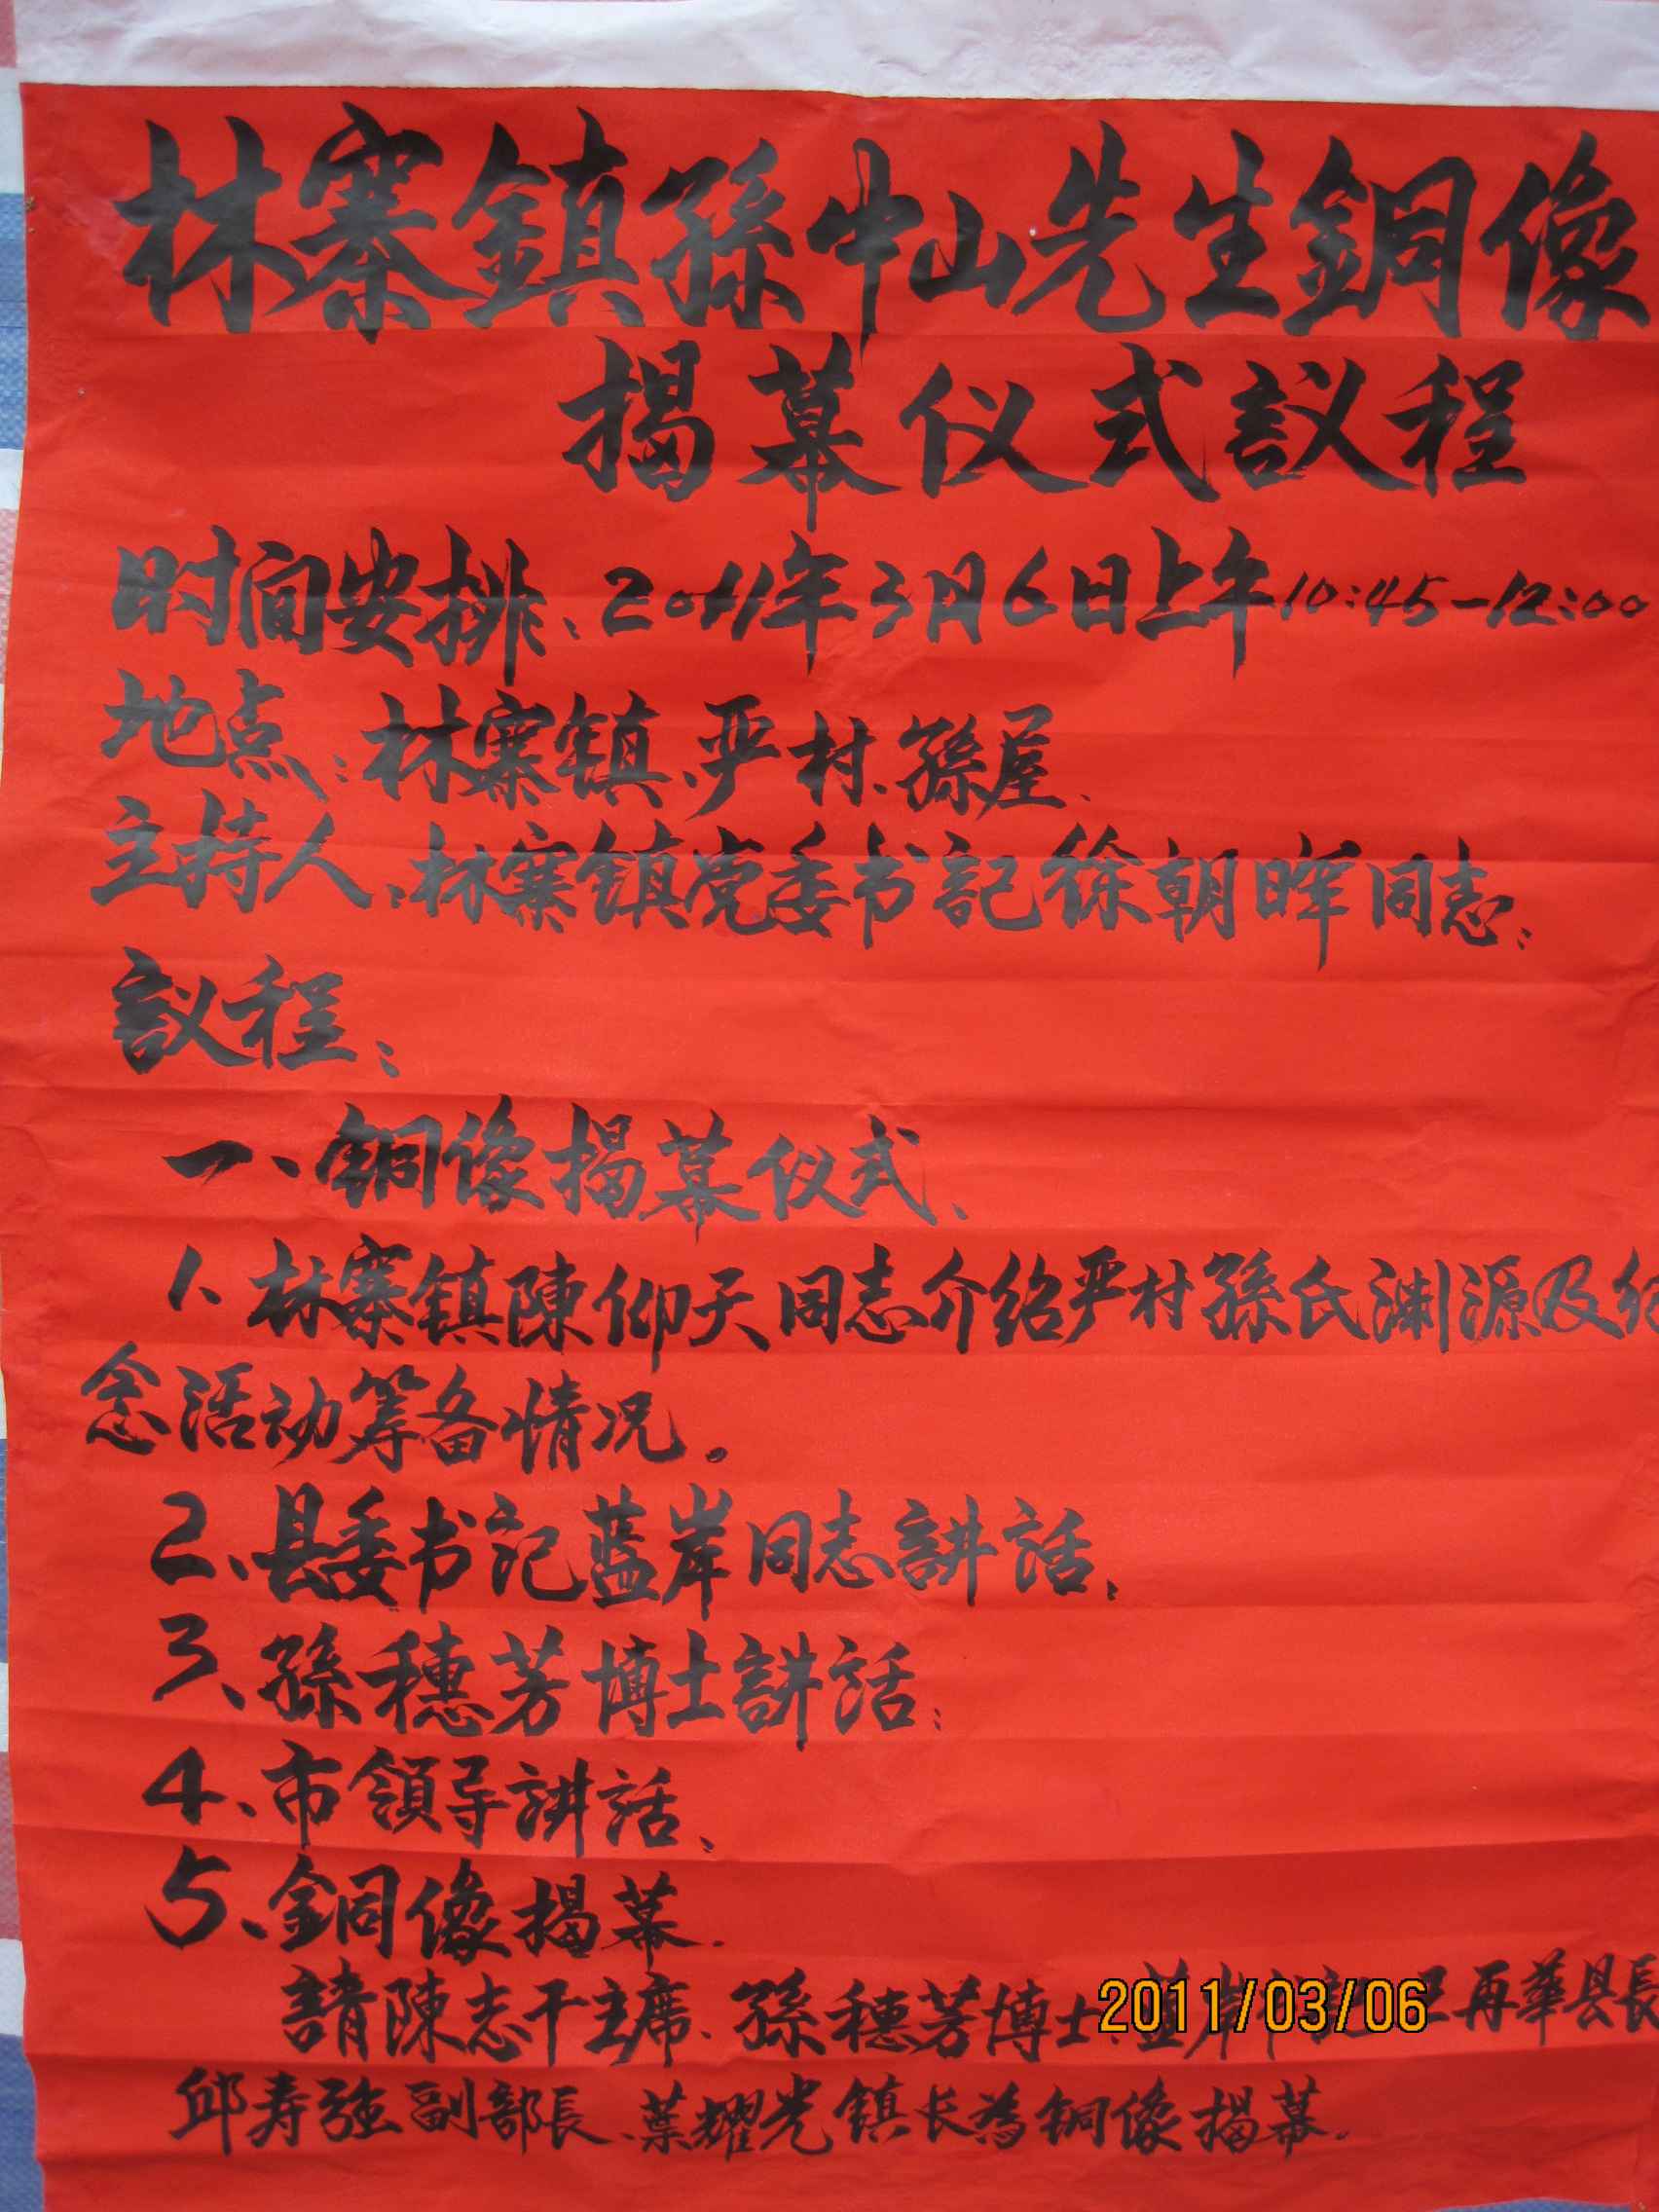 林寨鎮孫中山先生銅像
揭幕仪式議程
时间安排、2011年3月6日上午10:45-12:00
地点:林寨镇、严村、孫屋、
主持人、林寨镇党委书記徐朝晖同志:
議程:
一、铜像揭幕仪式、
1、林寨镇陳仰天同志介绍严村孫氏渊源及纪
念活动筹备情况。
2、县委书记蓝岸同志講話、
3、孫穗芳博士講話:
4、市領导讲話、
5、銅像揭幕.
請陳志干主席、孫穗芳博士、蓝岸 再華县長
邱寿强副部長、葉耀光镇长為铜像揭幕.
2011/03/06